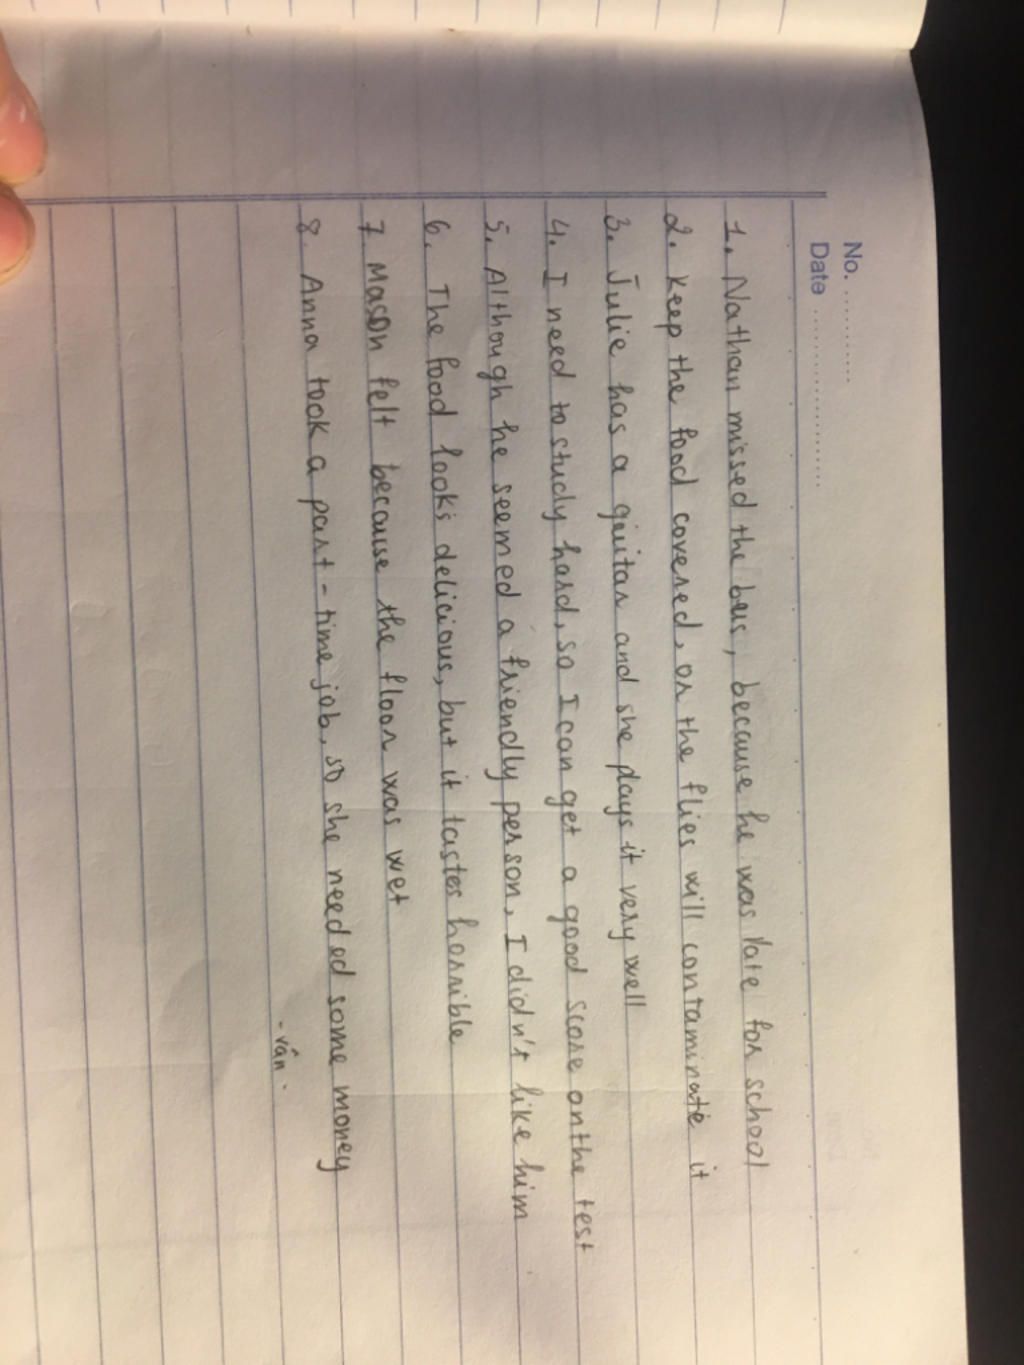 No. ............
Date ........................
1. Nathan missed the bus, because he was late for school
2. Keep the food covered, or the flies will contaminate it
3. Julie has a guitar and she plays it very well
4. I need to study hard, so I can get a good score on the test
5. Although he seemed a friendly person, I didn't like him
6. The food looks delicious, but it tastes horrible
7 Mason felt because the floor was wet
8. Anna took a part-time job, so she needed some money
- vân -